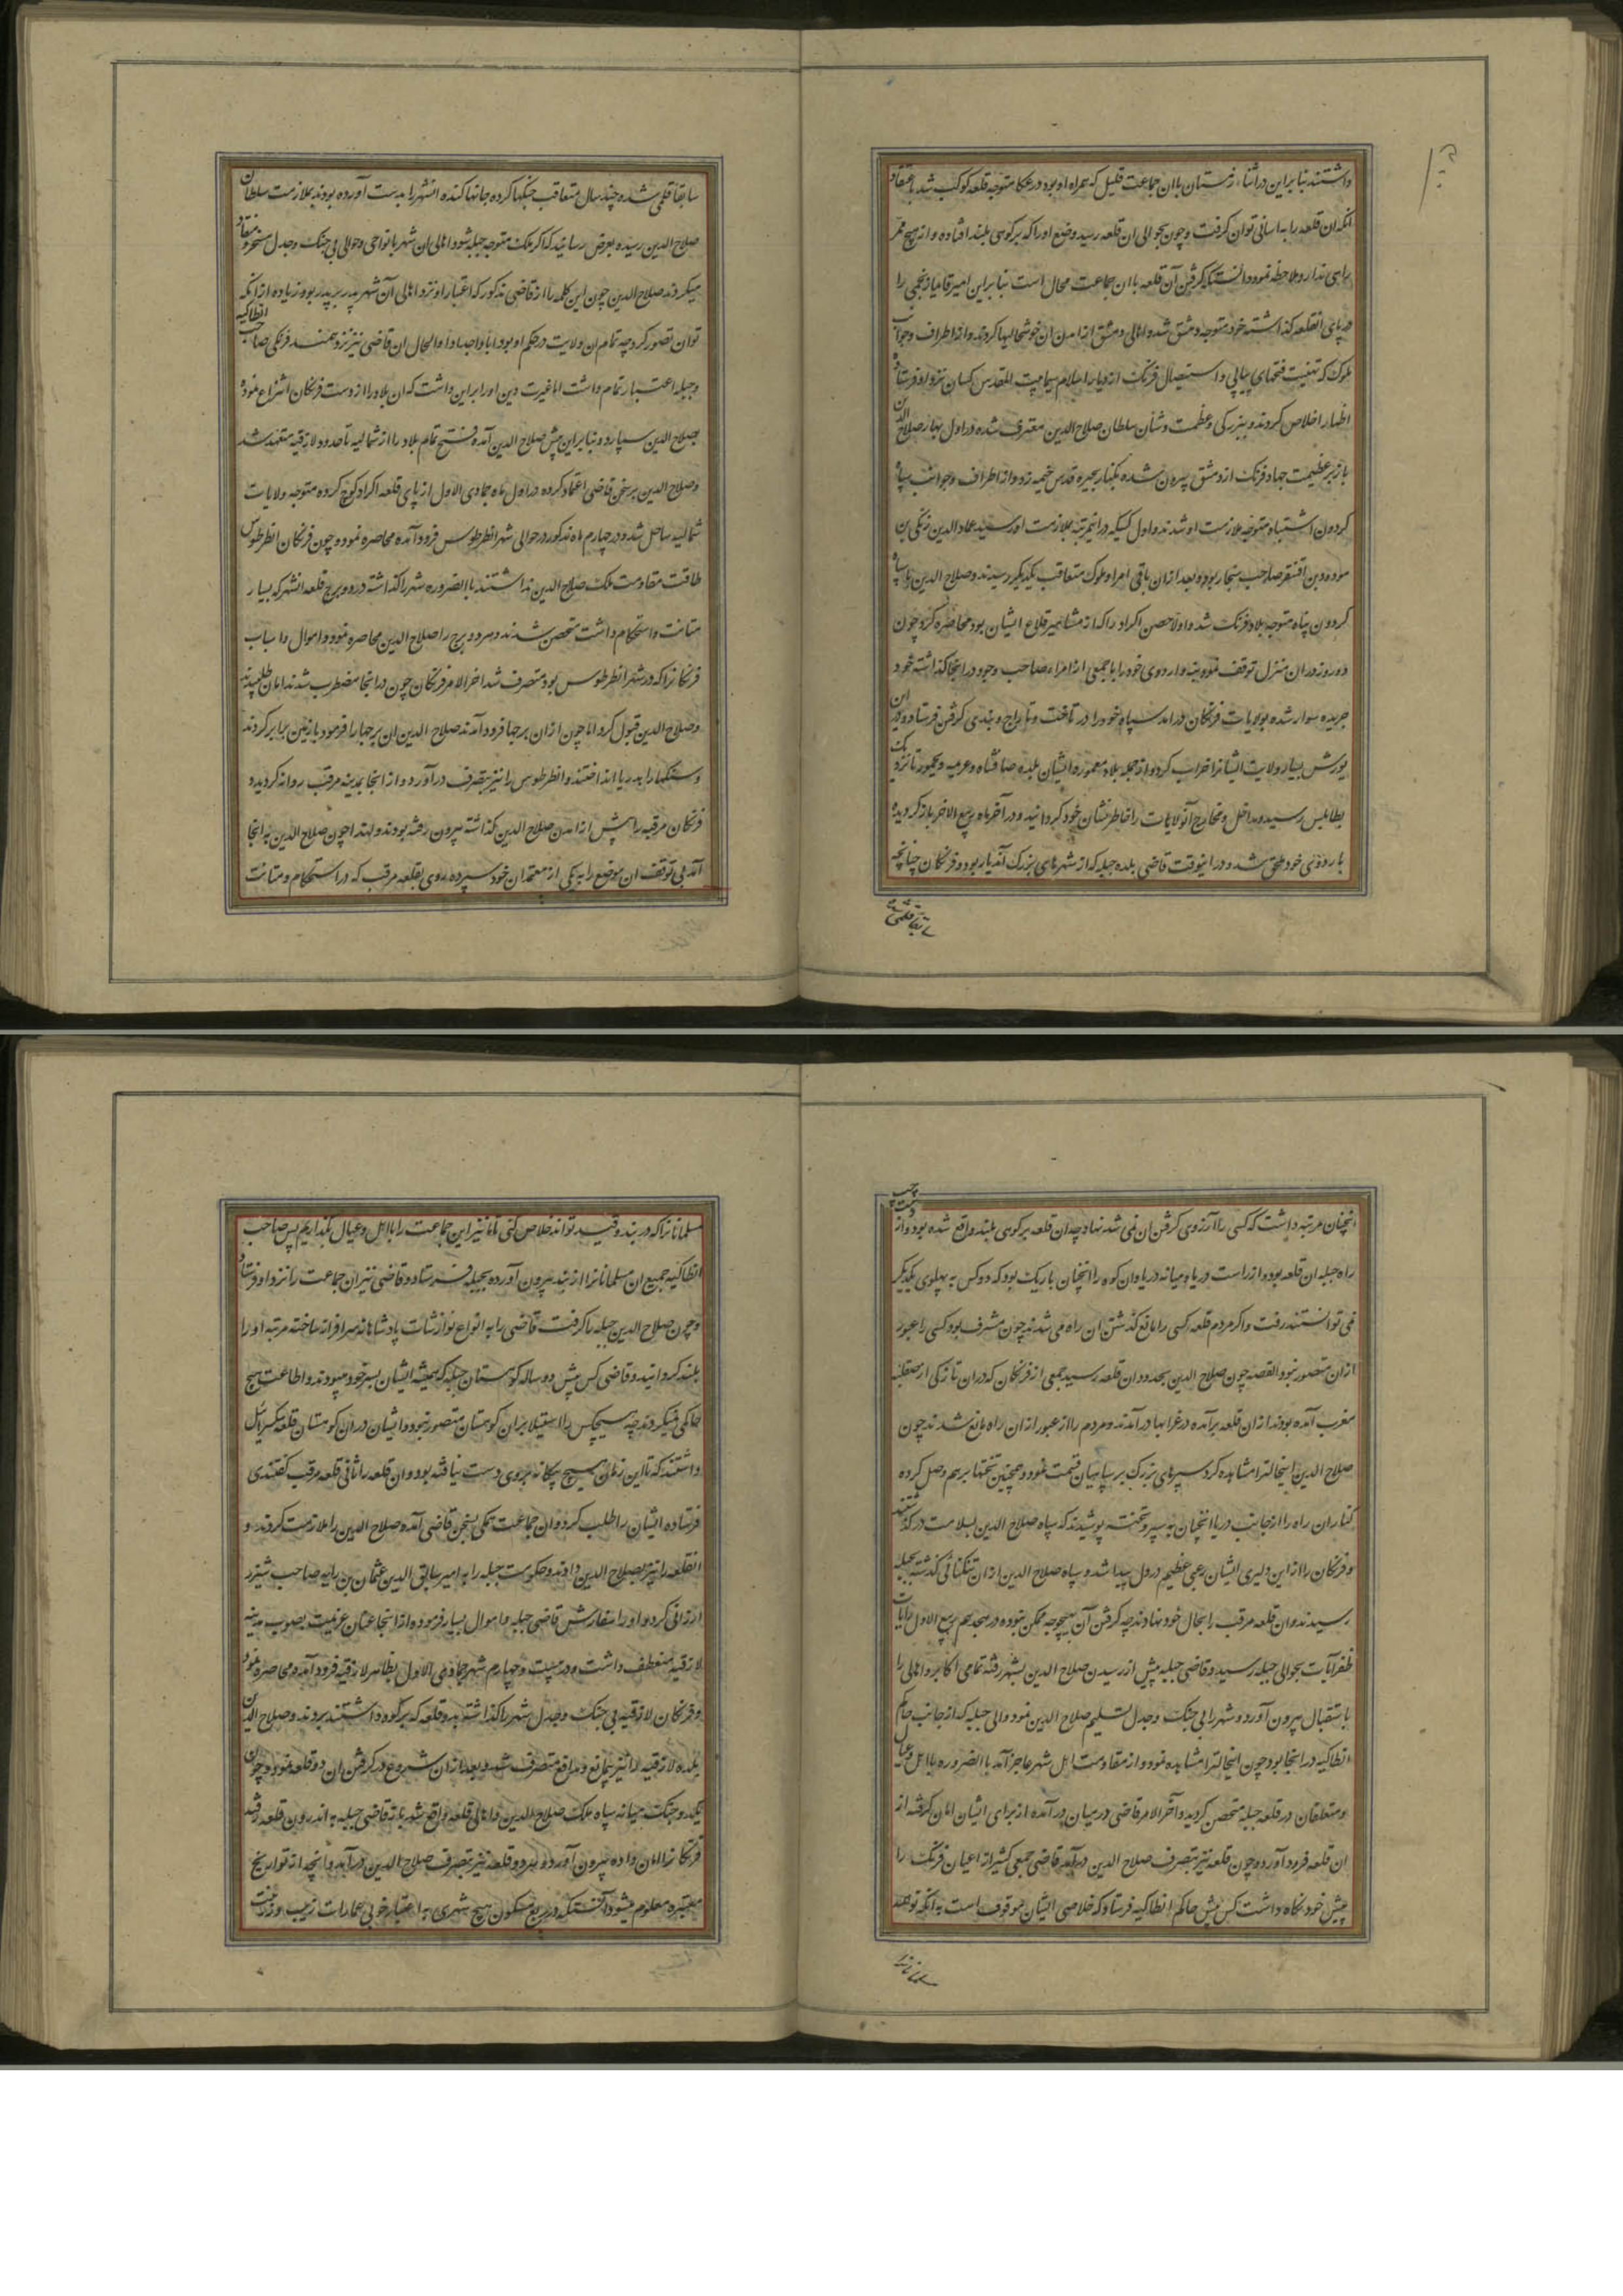 داشتند بنابراین در اثناء زمستان با آن جماعت قلیل که همراه او بود در عکا متوجه قلعه کوکب شد باعتقاد
آنکه آن قلعه را به آسانی توان گرفت و چون بحوالی آن قلعه رسید وضع او را که بر کوهی بلند افتاده و از هیچ ممر
راهی ندارد ملاحظه نمود دانست که گرفتن آن قلعه با آن جماعت محال است بنابراین امیر قایماز نجمی را
در پای آنقلعه گذاشته خود متوجه دمشق شد و اهالی دمشق از آمدن آن خوشحالیها کردند و از اطراف و جوانب
ملوک که تهنیت فتحهای پیاپی و استیصال فرنک از دیار اسلام سیما بیت المقدس کسان نزد او فرستاده
اظهار اخلاص کردند و ببزرکی و عظمت و شان سلطان صلاح الدین معترف شده در اول بهار صلاح الدین
باز بر عظیمت جهاد فرنک از دمشق بیرون شده بکنار بحیره قدس خیمه زد و از اطراف و جوانب سپاه
کردون اشتباه متوجه ملازمت او شدند و اول کسیکه در اینمرتبه بملازمت او رسید عماد الدین زنکی بن
مودود بن اقسنقر صاحب سنجار بود و بعد از آن باقی امرا و ملوک متعاقب یکدیکر رسیدند و صلاح الدین با سپاه
کردون پناه متوجه بلاد فرنک شد و اولا حصن اکراد را که از مشاهیر قلاع ایشان بود محاصره کرد و چون
دو روز در آن منزل توقف نموده بنه و اردوی خود را با جمعی از امراء صاحب وجود در انجا گذاشته خود
جریده سوار شده بولایات فرنکان درآمد سپاه خود را در تاخت و تاراج و بندی گرفتن فرستاد و در این
یورش بسیار ولایت ایشانرا خراب کرد و از جمله بلاد معموره ایشان بلده صافثاه و عریمه و یحمور تا نزدیک
بطرابلس رسید و مداخل و مخارج آنولایات را خاطرنشان خود کردانید و در آخر ماه ربیع الاخر باز کردیده
باردوی خود ملحق شد و در اینوقت قاضی بلده جبله که از شهرهای بزرک آندیار بود و فرنکان چنانچه
سابقا قلمی شد
سابقا قلمی شده چند سال متعاقب جنکها کرده جانها کنده انشهر را بدست آورده بودند بملازمت سلطان
صلاح الدین رسیده بعرض رسانید که اکر ملک متوجه جبله شود اهالی آن شهر با نواحی و حوالی بی جنک و جدل مسخر و منقاد
میکردند صلاح الدین چون این کلمه را از قاضی مذکور که اعتبار او نزد اهالی آن شهر پدر بر پدر بود زیاده از آنکه
توان تصور کرد چه تمام آن ولایت در حکم او بود ابا و اجدادا و الحال آن قاضی نیز نزد بیمند فرنکی صاحب انطاکیه
و جبله اعتبار تمام داشت اما غیرت دین او را بر این داشت که آن بلاد را از دست فرنکان انتزاع نموده
بصلاح الدین سپارد و بنابراین پیش صلاح الدین آمده فتح تمام بلاد را از شمالیه تا حدود لازقیه متعهد شد
و صلاح الدین بر سخن قاضی اعتماد کرده در اول ماه جمادی الاول از پای قلعه اکراد کوچ کرده متوجه ولایات
شمالیه ساحل شد و در چهارم ماه مذکور در حوالی شهر انطرطوس فرود آمده محاصره نمود و چون فرنکان انطرطوس
طاقت مقاومت ملک صلاح الدین نداشتند بالضروره شهر را گذاشته در دو برج قلعه انشهر که بسیار
متانت و استحکام داشت متحصن شدند و هر دو برج را صلاح الدین محاصره نمود و اموال و اسباب
فرنکانرا که در شهر انطرطوس بود متصرف شد اخر الامر فرنکان چون در انجا مضطرب شدند امان طلبیدند
و صلاح الدین قبول کرد اما چون از آن برجها فرود آمدند صلاح الدین آن برجها را فرمود با زمین برابر کردند
و سنکها را بدریا انداختند و انطرطوس را نیز بتصرف درآورد و از انجا بمدینه مرقب روانه کردید و
فرنکان مرقب را پیش از آمدن صلاح الدین گذاشته بیرون رفته بودند و لهذا چون صلاح الدین به انجا
آمد بی توقف آن موضع را به یکی از معتمدان خود سپرده روی بقلعه مرقب که در استحکام و متانت
انچنان مرتبه داشت که کسی را آرزوی گرفتن آن نمی شد نهاد چه آن قلعه بر کوهی بلند واقع شده بود و از
دست چپ
راه جبله آن قلعه بود و از راست دریا و میانه دریا و آن کوه را انچنان باریک بود که دو کس به پهلوی یکدیکر
نمی توانستند رفت و اکر مردم قلعه کسی را مانع گذشتن آن راه می شدند چون مشرف بود کسی را عبور
از آن متصور نبود القصه چون صلاح الدین بحدود آن قلعه رسید جمعی از فرنکان که در آن تازکی از صقلیه
مغرب آمده بودند از آن قلعه برآمده در غرابها درآمدند و مردم را از عبور از آن راه مانع شدند چون
صلاح الدین اینحالترا مشاهده کرد سپرهای بزرک بر سپاهیان قسمت نمود و همچنین تختها بر هم وصل کرده
کنار آن راه را از جانب دریا انچنان به سپر و تخته پوشیدند که سپاه صلاح الدین بسلامت درگذشتند
و فرنکان را از این دلیری ایشان رعبی عظیم در دل پیدا شد و سپاه صلاح الدین از آن تنکنای گذشته بجبله
رسیدند و آن قلعه مرقب را بحال خود نهادند چه گرفتن آن بهیچوجه ممکن نبود و در هجدهم ربیع الاول رایات
ظفر آیات بحوالی جبله رسید و قاضی جبله پیش از رسیدن صلاح الدین بشهر رفته تمامی اکابر و اهالی را
باستقبال بیرون آورد و شهر را بی جنک و جدل تسلیم صلاح الدین نمود والی جبله که از جانب حاکم
انطاکیه در انجا بود چون اینحالترا مشاهده نمود و از مقاومت اهل شهر عاجز آمد بالضروره با اهل و عیال
و متعلقان در قلعه جبله متحصن کردید و آخر الامر قاضی در میان درآمده از برای ایشان امان گرفته از
آن قلعه فرود آورد و چون قلعه نیز بتصرف صلاح الدین درآمد قاضی جمعی کثیر از اعیان فرنک را
پیش خود نکاه داشت کس پیش حاکم انطاکیه فرستاد که خلاصی ایشان موقوف است به آنکه تو همه
مسلمانانرا
مسلمانانرا که در بند و قید تواند خلاص کنی تا ما نیز این جماعت را با اهل و عیال بگذاریم پس صاحب
انطاکیه جمیع آن مسلمانانرا از بند بیرون آورده بجبله فرستاد و قاضی نیز آن جماعت را نزد او فرستاد
و چون صلاح الدین جبله را گرفت قاضی را به انواع نوازشات پادشاهانه سرافراز ساخته مرتبه او را
بلند کردانید و قاضی کس پیش روساء کوهستان جبله که همیشه ایشان بسر خود میبودند و اطاعت هیچ
حاکمی نمیکردند چه هیچکس را استیلا بر آن کوهستان متصور نبود و ایشان در آن کوهستان قلعه بکسراییل
داشتند که تا این زمان هیچ بیکانه بر وی دست نیافته بود و آن قلعه را ثانی قلعه مرقب گفتندی
فرستاده ایشان را طلب کرد و آن جماعت همکی بسخن قاضی آمده صلاح الدین را ملازمت کردند و
انقلعه را نیز بصلاح الدین دادند و حکومت جبله را به امیر سابق الدین عثمان بن دایه صاحب شیزر
ارزانی کرد و او را سفارش قاضی جبله و اموال بسیار فرموده از انجا عنان عزیمت بصوب مدینه
لازقیه منعطف داشت و در بیست و چهارم شهر جمادی الاول بظاهر لازقیه فرود آمد و محاصره نمود
و فرنکان لازقیه بی جنک و جدل شهر را گذاشته بدو قلعه که بر کوه داشتند بردند و صلاح الدین
بلده لازقیه را نیز بیمانع و مدافع متصرف شد و بعد از آن شروع در گرفتن آن دو قلعه نمود و چون
یکدو جنک میانه سپاه ملک صلاح الدین و اهالی قلعه واقع شد باز قاضی جبله به اندرون قلعه رفته
فرنکانرا امان داده بیرون آورد و هر دو قلعه نیز بتصرف صلاح الدین درآمد و انچه از تواریخ
معتبره معلوم میشود آنستکه در ربع مسکون هیچ شهری به اعتبار خوبی عمارات زیب و زینت